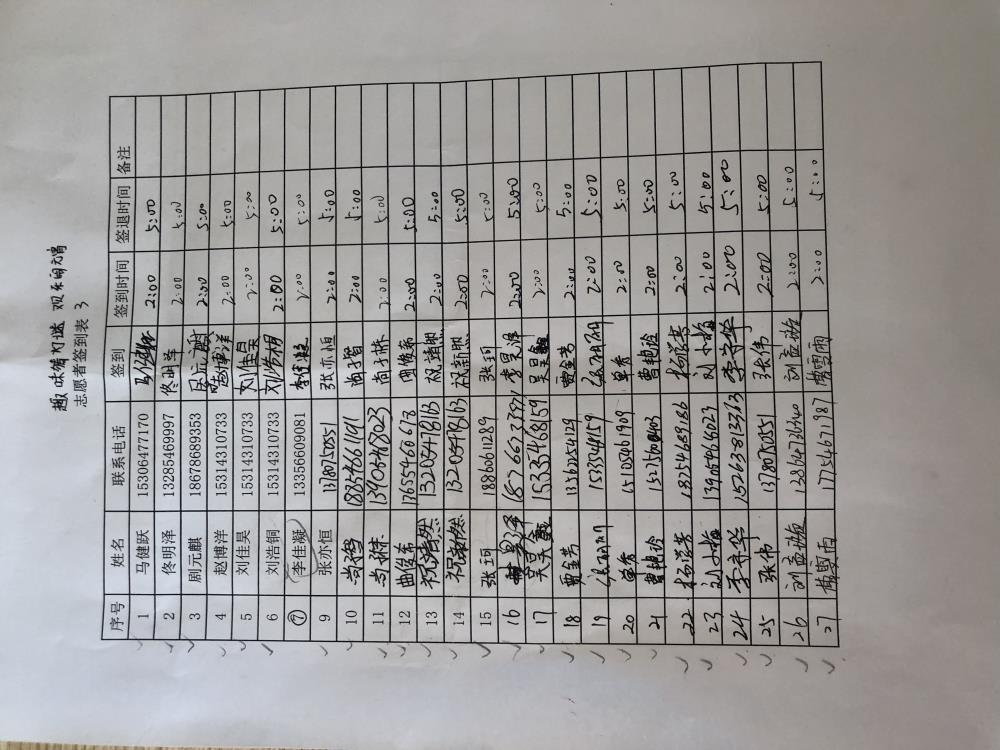 趣味猜灯谜 观乐闹元宵
志愿者签到表 3
序号 姓名 联系电话 签到 签到时间 签退时间 备注
1 马健跃 15306477170 马健跃 2:00 5:00
2 佟明泽 13285469997 佟明泽 2:00 5:00
3 剧元麒 18678689353 剧元麒 2:00 5:00
4 赵博洋 15314310733 赵博洋 2:00 5:00
5 刘佳昊 15314310733 刘佳昊 2:00 5:00
6 刘浩铜 15314310733 刘浩铜 2:00 5:00
⑦ 李佳凝 13356609081 李佳凝 2:00 5:00
9 张亦恒 13780750551 张亦恒 2:00 5:00
10 尚 18954661141 尚 2:00 5:00
11 尚 13905468023 尚 2:00 5:00
12 曲俊希 13655460678 曲俊希 2:00 5:00
13 祝 13205478163 祝 2:00 5:00
14 祝 13205478163 祝 2:00 5:00
15 张珂 18860611289 张珂 2:00 5:00
16 2:00 5:00
17 吴昊 15335468159 吴昊 2:00 5:00
18 贾金芳 13562054129 贾金芳 2:00 5:00
19 张明明 15335468159 张明明 2:00 5:00
20 单秀 15105461909 单秀 2:00 5:00
21 曹艳玲 曹艳玲 2:00 5:00
22 杨洪芳 18254689186 杨洪芳 2:00 5:00
23 刘小梅 13905468023 刘小梅 2:00 5:00
24 李守华 15263813313 李守华 2:00 5:00
25 张伟 13780750551 张伟 2:00 5:00
26 刘孟璇 13864736440 刘孟璇 2:00 5:00
27 雪雨 17754671787 雪雨 2:00 5:00